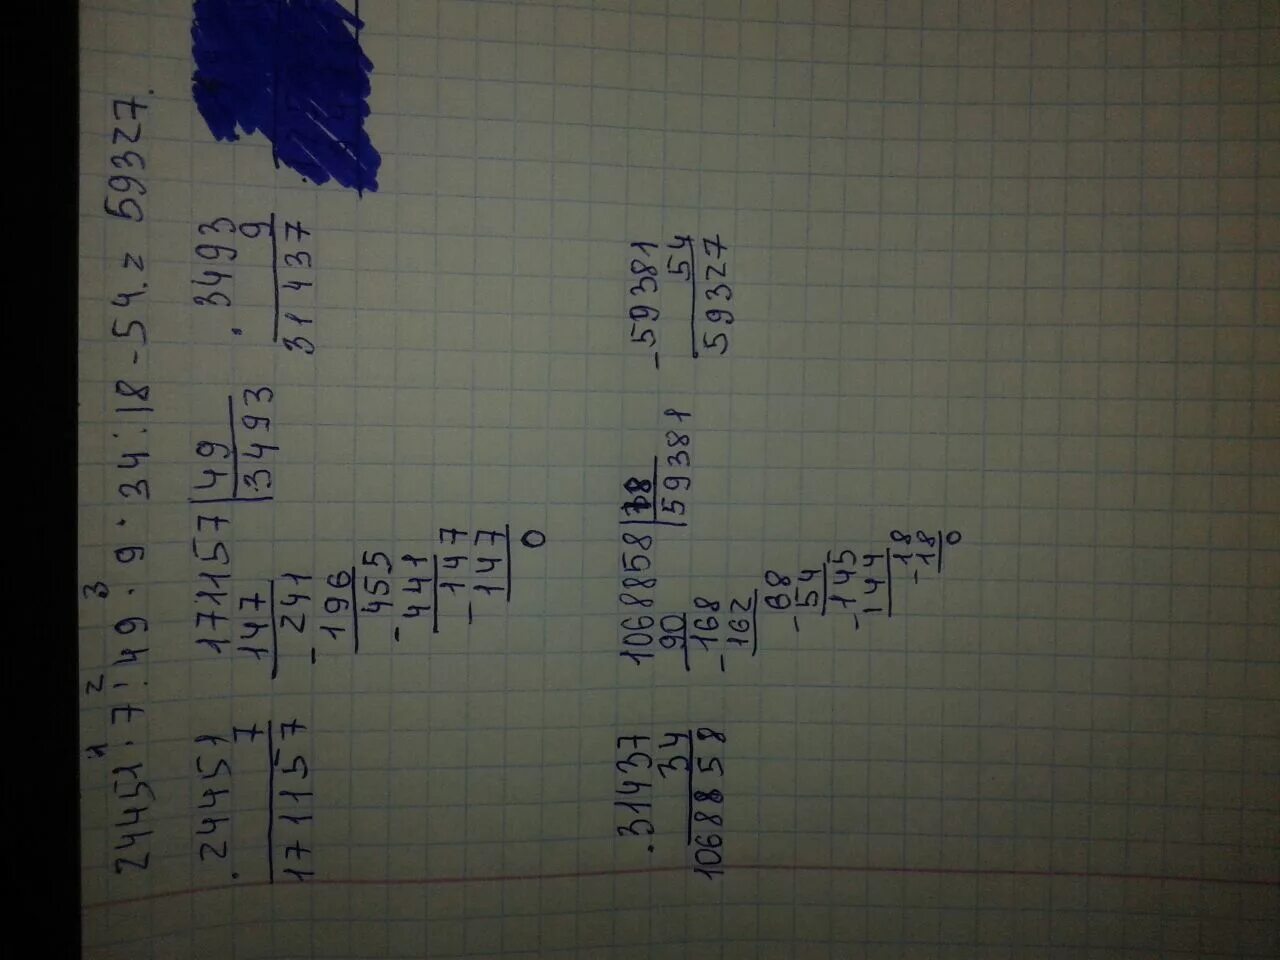 1 2 3
24451·7:49·9·34:18-54.=59327.
.24451
7
171157
171157|49
147 |3493
-241
196
-455
441
-147
147
0
.3493
9
31437
.31437
34
1068858
1068858|18
90 |59381
-168
162
-68
54
-145
144
-18
18
0
-59381
54
59327